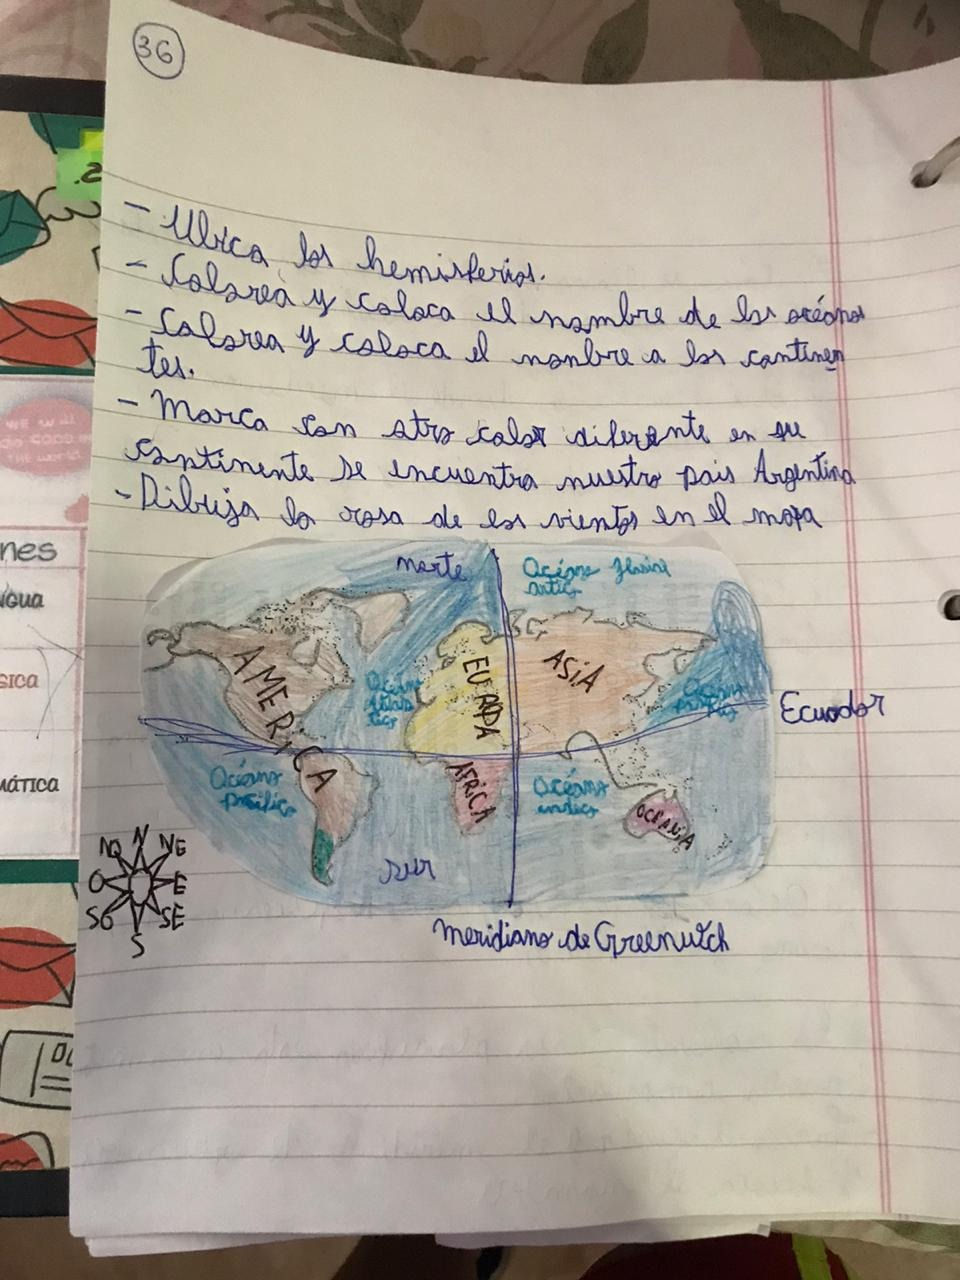 36
- Ubica los hemisferios.
- Colorea y coloca el nombre de los océanos
- Colorea y coloca el nonbre a los continen
tes.
- Marca con otro color diferente en su
continente se encuentra nuestro pais Argentina
- Dibuja la rosa de los vientos en el mapa
norte
Océano
AMERICA
EUROPA
ASiA
Océano
Océano
Ecuador
Océano
pacifico
AFRiCA
Océano
indico
OCEANiA
sur
N
NO
NE
O
E
SO
SE
S
Meridiano de Greenwich
nes
sica
mática
2.
WE WILL